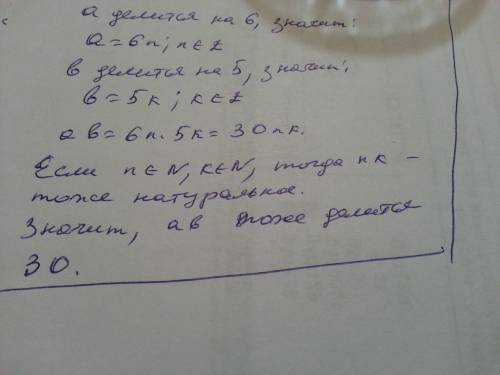 а делится на 6, значит:
a = 6n; n ∈ Z
в делится на 5, значит:
в = 5k; k ∈ Z
aв = 6n · 5k = 30nk.
Если n ∈ N, k ∈ N, тогда nk –
тоже натуральное.
Значит, ав тоже делится
30.